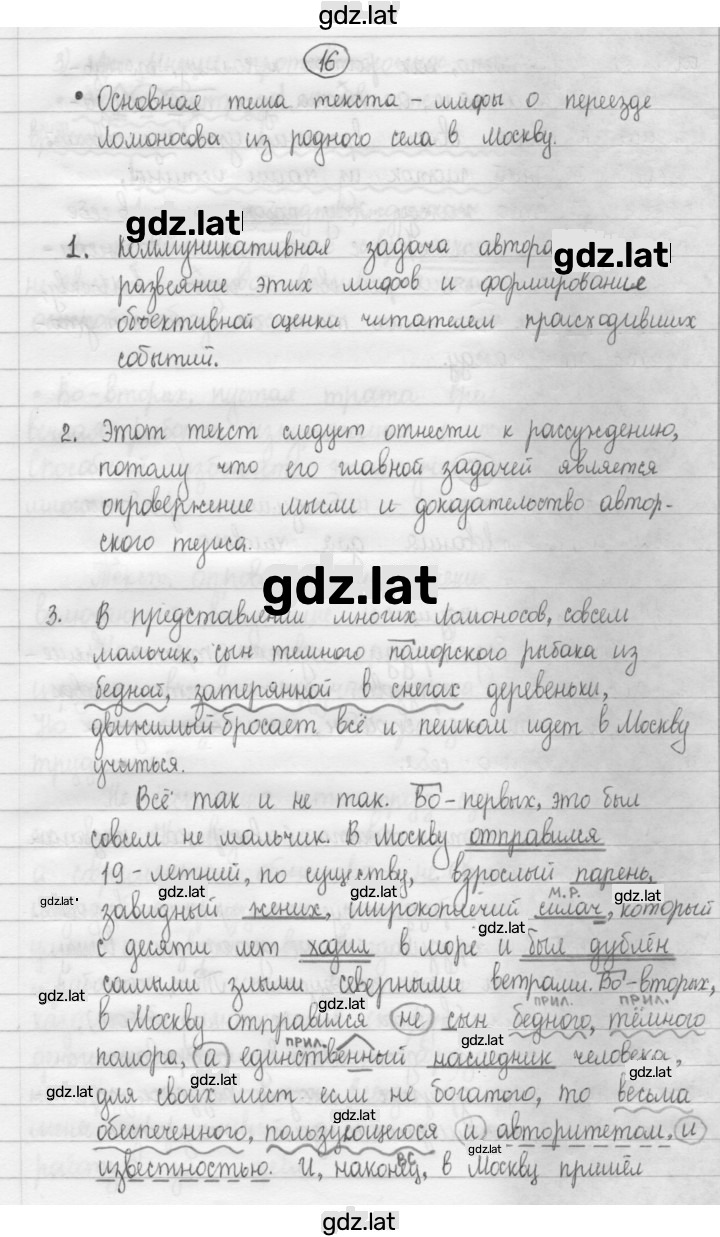 gdz.lat
16
• Основная тема текста – мифы о переезде
Ломоносова из родного села в Москву.
gdz.lat
1. Коммуникативная задача автора
gdz.lat
развеяние этих мифов и формирование
объективной оценки читателем происходивших
событий.
2. Этот текст следует отнести к рассуждению,
потому что его главной задачей является
опровержение мысли и доказательство автор-
ского тезиса.
gdz.lat
3. В представлении многих Ломоносов, совсем
мальчик, сын темного поморского рыбака из
бедной, затерянной в снегах деревеньки,
движимый бросает всё и пешком идет в Москву
учиться.
Всё так и не так. Во-первых, это был
совсем не мальчик. В Москву отправился
19-летний, по существу, взрослый парень,
gdz.lat
gdz.lat
gdz.lat
gdz.lat
м.р.
завидный жених, широкоплечий силач, который
gdz.lat
с десяти лет ходил в море и был дублён
самыми злыми северными ветрами. Во-вторых,
gdz.lat
gdz.lat
прил. прил.
в Москву отправился не сын бедного, тёмного
прил.
помора, а единственный наследник человека,
gdz.lat
gdz.lat
для своих мест если не богатого, то весьма
gdz.lat
обеспеченного, пользующегося и авторитетом, и
gdz.lat
известностью. И, наконец, в Москву пришёл
gdz.lat